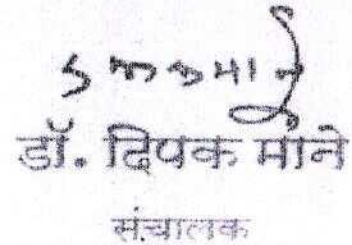 डॉ. दिपक माने
संचालक